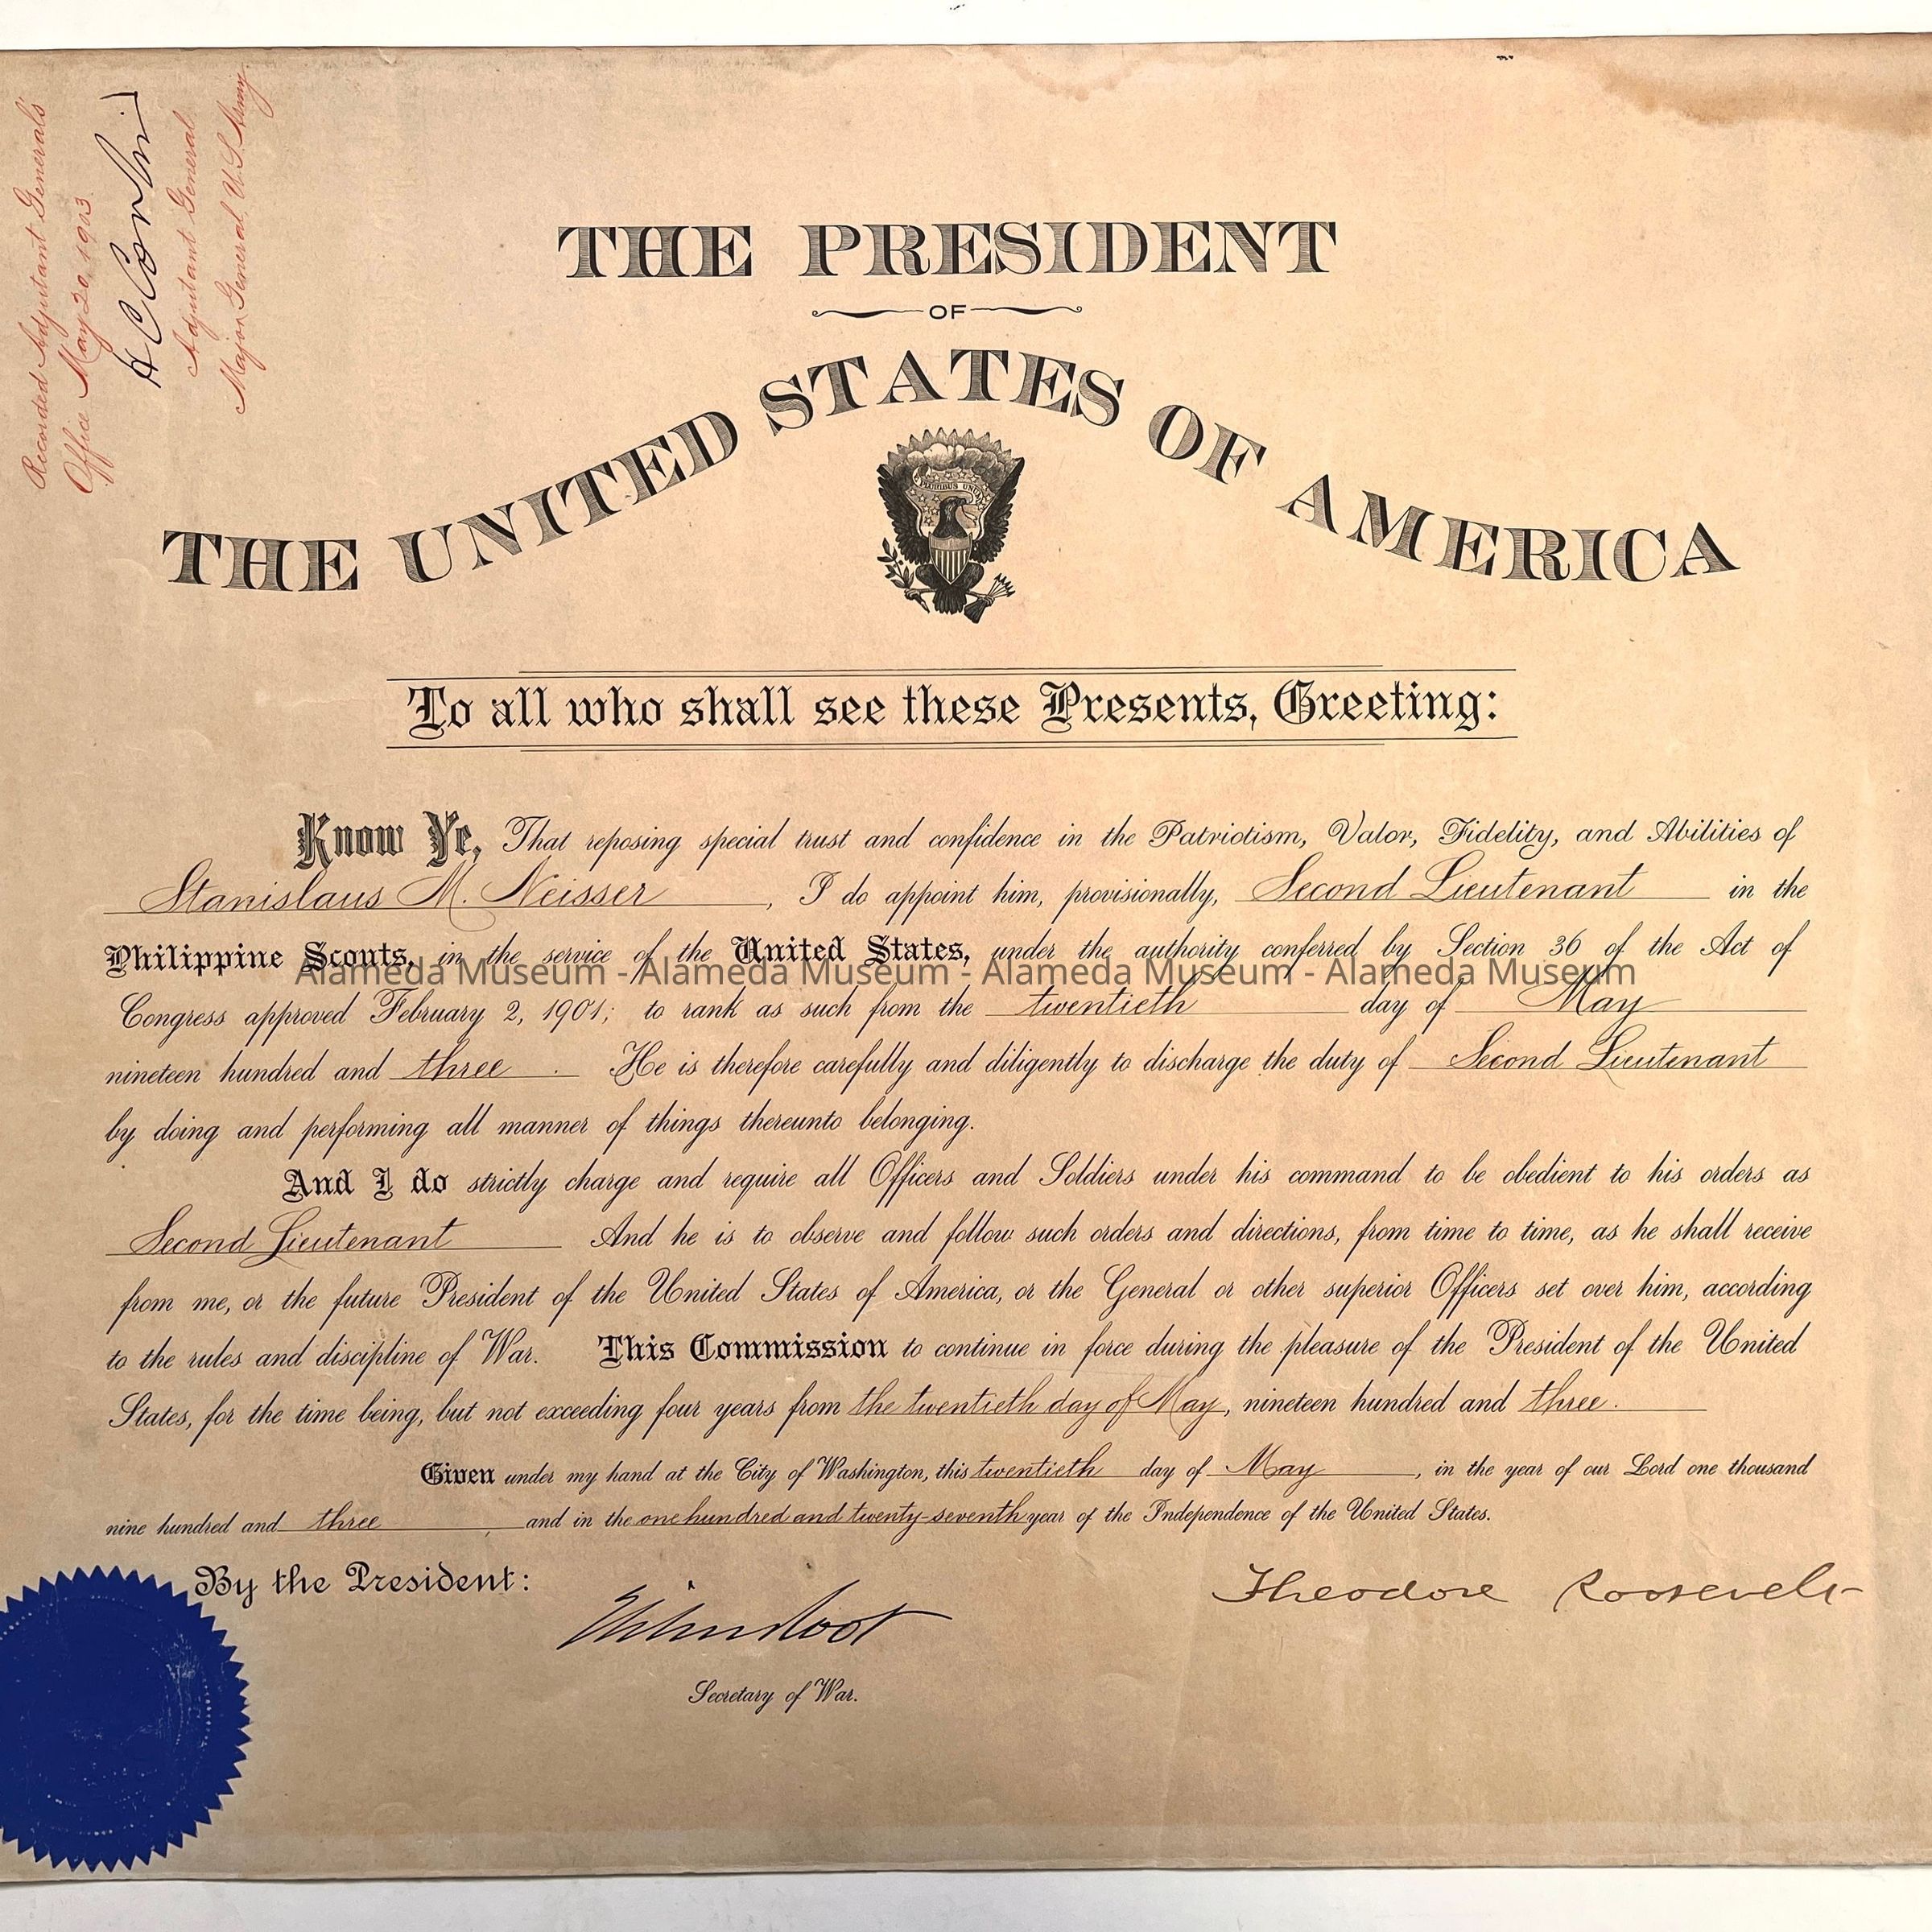 Recorded Adjutant General's
Office May 20, 1903.
H C Corbin
Adjutant General
Major General, U.S. Army.
THE PRESIDENT
OF
THE UNITED STATES OF AMERICA
PLURIBUS UNUM
To all who shall see these Presents, Greeting:
Know Ye, That reposing special trust and confidence in the Patriotism, Valor, Fidelity, and Abilities of
Stanislaus M. Neisser, I do appoint him, provisionally, Second Lieutenant in the
Philippine Scouts, in the service of the United States, under the authority conferred by Section 36 of the Act of
Alameda Museum - Alameda Museum - Alameda Museum - Alameda Museum
Congress approved February 2, 1901; to rank as such from the twentieth day of May
nineteen hundred and three. He is therefore carefully and diligently to discharge the duty of Second Lieutenant
by doing and performing all manner of things thereunto belonging.
And I do strictly charge and require all Officers and Soldiers under his command to be obedient to his orders as
Second Lieutenant And he is to observe and follow such orders and directions, from time to time, as he shall receive
from me, or the future President of the United States of America, or the General or other superior Officers set over him, according
to the rules and discipline of War. This Commission to continue in force during the pleasure of the President of the United
States, for the time being, but not exceeding four years from the twentieth day of May, nineteen hundred and three.
Given under my hand at the City of Washington, this twentieth day of May, in the year of our Lord one thousand
nine hundred and three, and in the one hundred and twenty-seventh year of the Independence of the United States.
By the President:
Theodore Roosevelt
Elihu Root
Secretary of War.